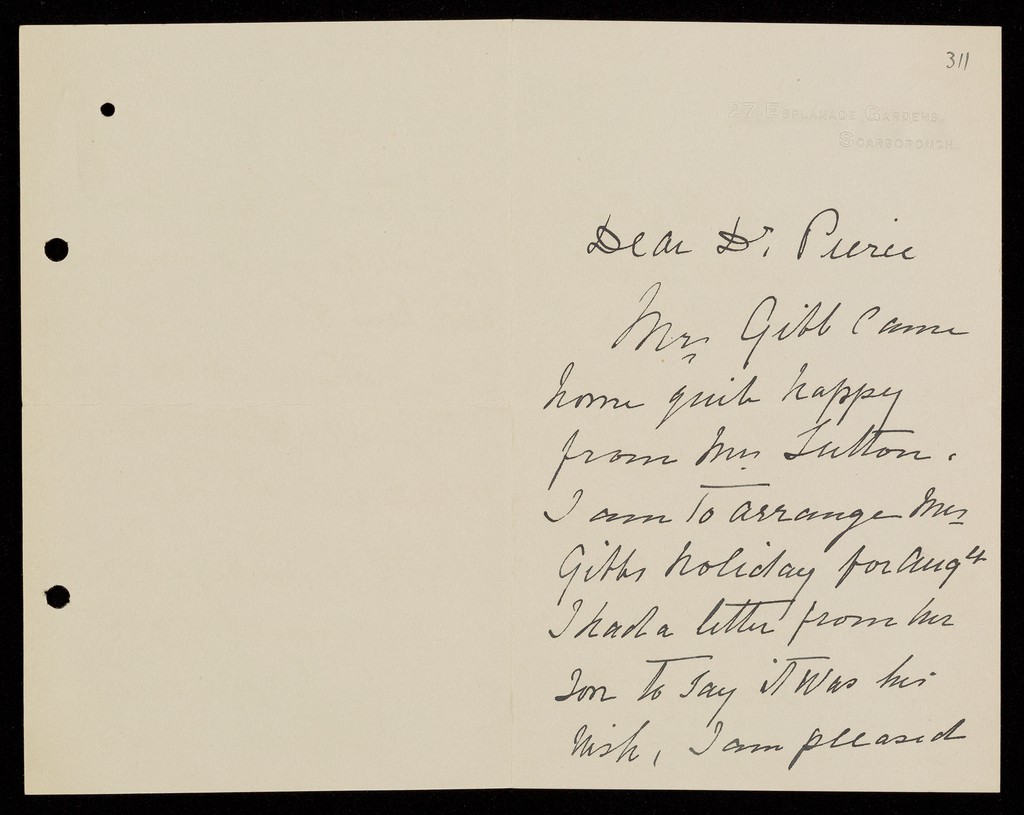 311
27, Esplanade Gardens,
Scarborough.
Dear Dr. Pierce
Mrs Gibb Came
home quite happy
from Mrs Sutton.
I am To arrange Mrs
Gibbs holiday for Augst
I had a letter from her
Son To Say it Was his
Wish, I am pleased